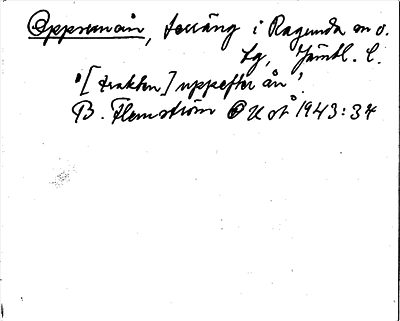 Oppremoin, terräng i Ragunda sn o.
tg, Jämtl. l.
"[trakten] uppefter ån".
B. Flemström OUoÅ 1943:34